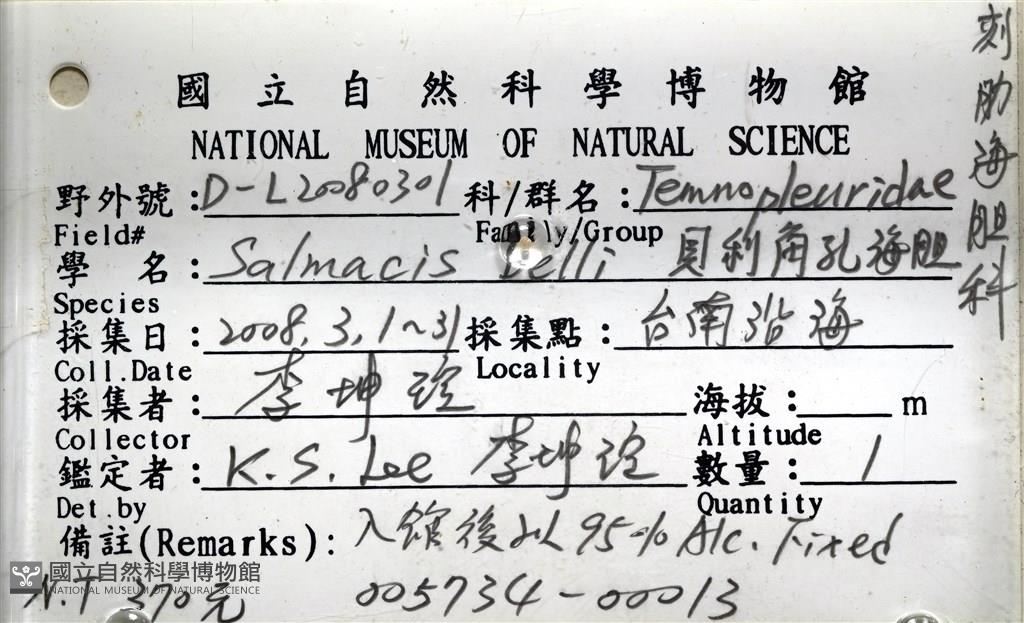 國立自然科學博物館
NATIONAL MUSEUM OF NATURAL SCIENCE
野外號：D-L20080301 科/群名：Temnopleuridae
Field# Family/Group
刻肋海胆科
學 名：Salmacis belli 貝利角孔海胆
Species
採集日：2008.3.1~31 採集點：台南沿海
Coll.Date Locality
採集者：李坤瑄 海拔： m
Collector Altitude
鑑定者：K.S. Lee 李坤瑄 數量：1
Det.by Quantity
備註(Remarks)：入館後以95% Alc. Fixed
N.T 370元 005734-00013
國立自然科學博物館
NATIONAL MUSEUM OF NATURAL SCIENCE